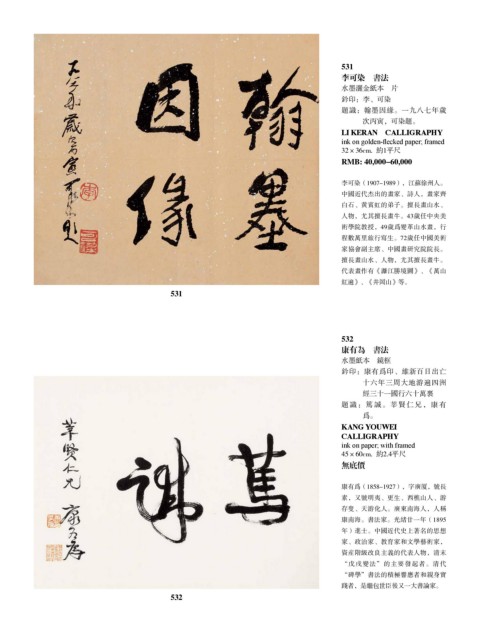 翰墨
因緣
一九八七年歲次丙寅可染題
531
531
李可染　書法
水墨灑金紙本　片
鈐印：李、可染
題識：翰墨因緣。一九八七年歲
次丙寅，可染題。
LI KERAN CALLIGRAPHY
ink on golden-flecked paper; framed
32 × 36cm. 約1平尺
RMB: 40,000–60,000
李可染（1907-1989），江蘇徐州人。
中國近代杰出的畫家、詩人，畫家齊
白石、黃賓虹的弟子。擅長畫山水、
人物，尤其擅長畫牛。43歲任中央美
術學院教授，49歲爲變革山水畫，行
程數萬里旅行寫生。72歲任中國美術
家協會副主席、中國畫研究院院長。
擅長畫山水、人物，尤其擅長畫牛。
代表畫作有《灕江勝境圖》、《萬山
紅遍》、《井岡山》等。
篤
誠
莘賢仁兄
康有爲
532
532
康有為　書法
水墨紙本　鏡框
鈐印：康有爲印、維新百日出亡
十六年三周大地游遍四洲
經三十一國行六十萬裏
題識：篤誠。莘賢仁兄，康有
爲。
KANG YOUWEI
CALLIGRAPHY
ink on paper; with framed
45 × 60cm. 約2.4平尺
無底價
康有爲（1858-1927），字廣厦，號長
素，又號明夷、更生、西樵山人、游
存叟、天游化人。廣東南海人，人稱
康南海。書法家。光緒廿一年（1895
年）進士。中國近代史上著名的思想
家、政治家、教育家和文學藝術家，
資産階級改良主義的代表人物，清末
“戊戌變法”的主要發起者。清代
“碑學”書法的積極響應者和親身實
踐者，是繼包世臣後又一大書論家。